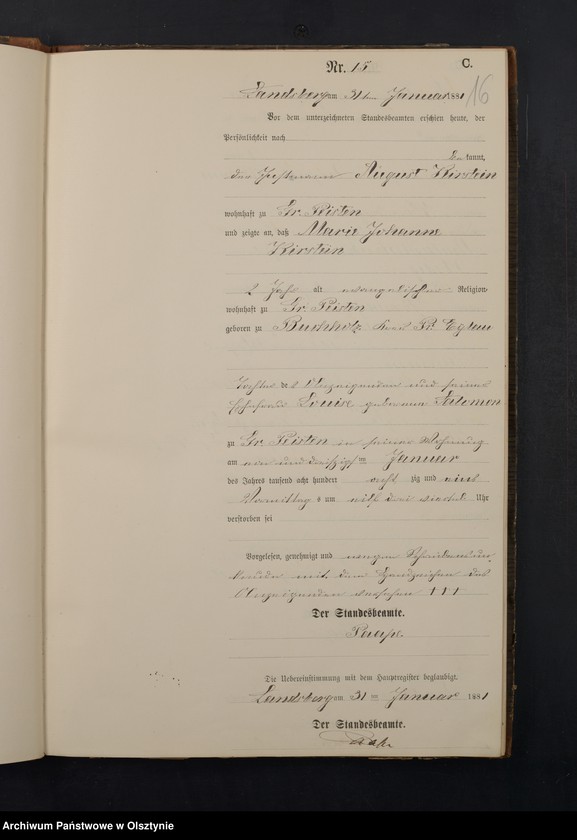 Nr. 15
C.
16
Landsberg am 31ten Januar 1881
Vor dem unterzeichneten Standesbeamten erschien heute, der
Persönlichkeit nach
Be kannt,
der Instmann August Kirstein
wohnhaft zu Gr. Peisten
und zeigte an, daß Marie Johanne
Kirstein
2 Jahr alt evangelischer Religion
wohnhaft zu Gr. Peisten
geboren zu Buchholz Kreis Pr. Eylau
Tochter des Anzeigenden und seiner
Ehefrau Louise geborene Salomon
zu Gr. Peisten in seiner Wohnung
am ein und dreißigsten Januar
des Jahres tausend acht hundert acht zig und eins
Vormittag s um drei viertel Uhr
verstorben sei
Vorgelesen, genehmigt und wegen Schreibensun
kunde mit dem Handzeichen des
Anzeigenden versehen † † †
Der Standesbeamte.
Die Uebereinstimmung mit dem Hauptregister beglaubigt.
Landsberg am 31 ten Januar 1881
Der Standesbeamte.
Archiwum Państwowe w Olsztynie